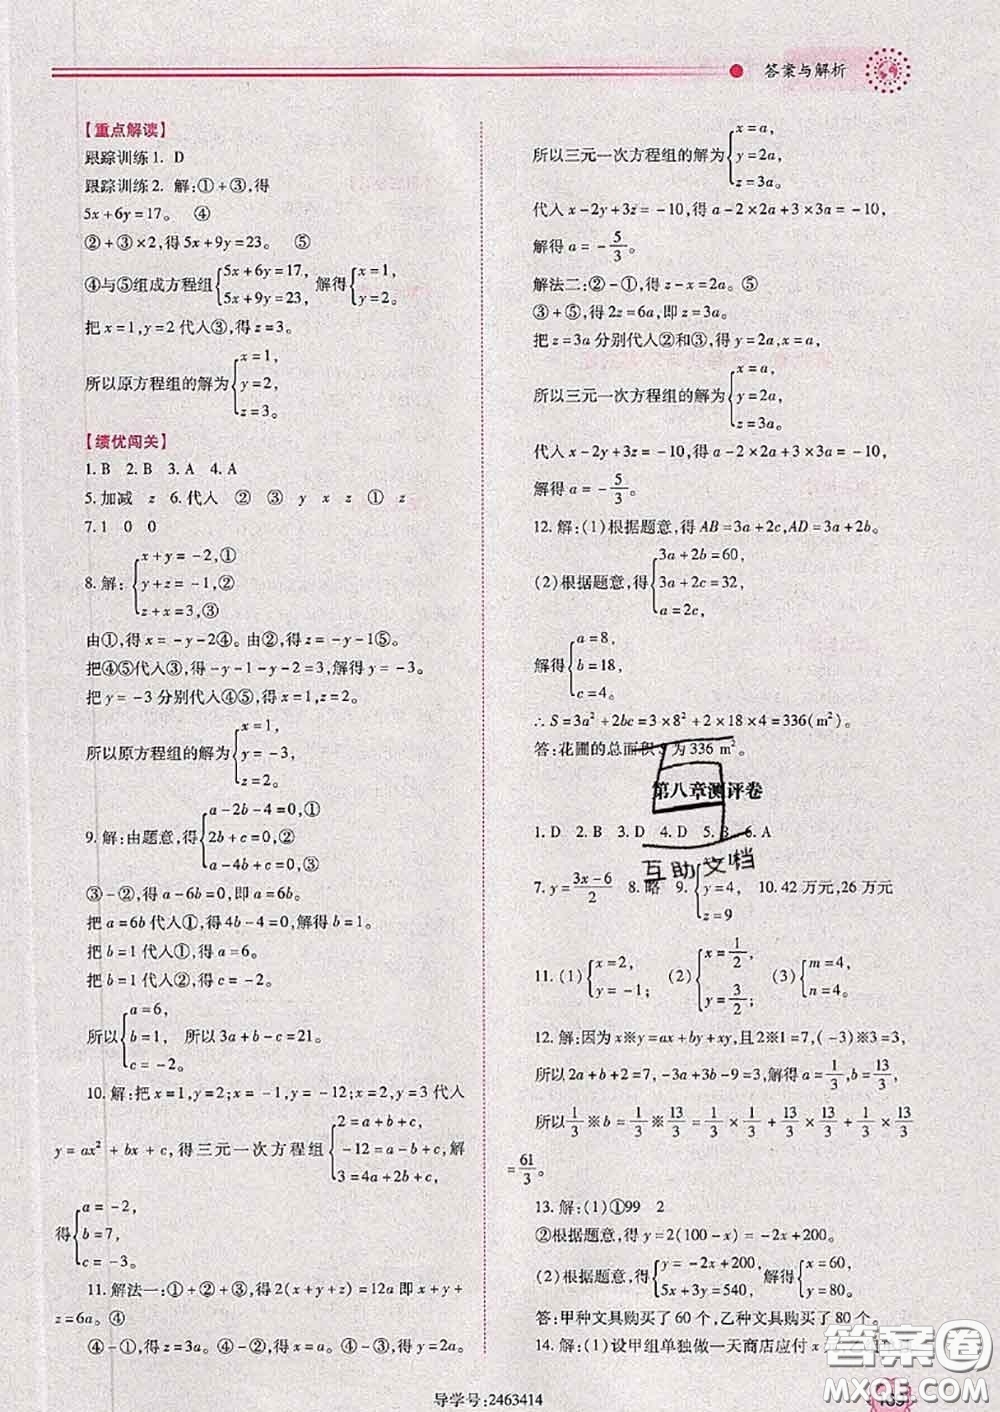 答案与解析
【重点解读】
跟踪训练1. D
跟踪训练2. 解:①+③,得
5x+6y=17。 ④
②+③×2,得5x+9y=23。 ⑤
④与⑤组成方程组{5x+6y=17, 5x+9y=23, 解得{x=1, y=2。
把x=1,y=2代入③,得z=3。
所以原方程组的解为{x=1, y=2, z=3。
【绩优闯关】
1. B 2. B 3. A 4. A
5. 加减 z 6. 代入 ② ③ y x z ① z
7. 1 0 0
8. 解:{x+y=-2,① y+z=-1,② z+x=3,③
由①,得x=-y-2④。由②,得z=-y-1⑤。
把④⑤代入③,得-y-1-y-2=3,解得y=-3。
把y=-3分别代入④⑤,得x=1,z=2。
所以原方程组的解为{x=1, y=-3, z=2。
9. 解:由题意,得{a-2b-4=0,① 2b+c=0,② a-4b+c=4,③
③-②,得a-6b=0,即a=6b。
把a=6b代入①,得4b-4=0,解得b=1。
把b=1代入①,得a=6。
把b=1代入②,得c=-2。
所以{a=6, b=1, c=-2。 所以3a+b-c=21。
10. 解:把x=1,y=2;x=-1,y=-12;x=2,y=3代入
y=ax²+bx+c,得三元一次方程组{2=a+b+c, -12=a-b+c, 3=4a+2b+c, 解
得{a=-2, b=7, c=-3。
11. 解法一:①+②+③,得2(x+y+z)=12a即x+y+
z=6a。④
④-①,得z=3a,④-②,得x=a,④-③,得y=2a。
所以三元一次方程组的解为{x=a, y=2a, z=3a。
代入x-2y+3z=-10,得a-2×2a+3×3a=-10,
解得a=-5/3。
解法二:②-①,得z-x=2a。⑤
③+⑤,得2z=6a,即z=3a。
把z=3a分别代入②和③,得y=2a,x=a,
所以三元一次方程组的解为{x=a, y=2a, z=3a。
代入x-2y+3z=-10,得a-2×2a+3×3a=-10,
解得a=-5/3。
12. 解:(1)根据题意,得AB=3a+2c,AD=3a+2b。
(2)根据题意,得{3a+2b=60, 3a+2c=32, a=2c,
解得{a=8, b=18, c=4。
∴S=3a²+2bc=3×8²+2×18×4=336(m²)。
答:花圃的总面积S为336 m²。
第八章测评卷
1. D 2. B 3. D 4. D 5. B 6. A
7. y=(3x-6)/2 8. 略 9. { y=4, z=9 10. 42万元,26万元
11. (1){x=2, y=-1; (2){x=1/2, y=3/2; (3){m=4, n=4。
12. 解:因为x※y=ax+by+xy,且2※1=7,(-3)※3=3,
所以2a+b+2=7,-3a+3b-9=3,解得a=1/3,b=13/3,
所以1/3※b=1/3※13/3=1/3×1/3+13/3×13/3+1/3×13/3
=61/3。
13. 解:(1)①99 2
②根据题意,得y=2(100-x)=-2x+200。
(2)根据题意,得{y=-2x+200, 5x+3y=540, 解得{x=60, y=80。
答:甲种文具购买了60个,乙种文具购买了80个。
14. 解:(1)设甲组单独做一天商店应付x
互助文档
导学号:2463414
答案圈
MXQE.COM